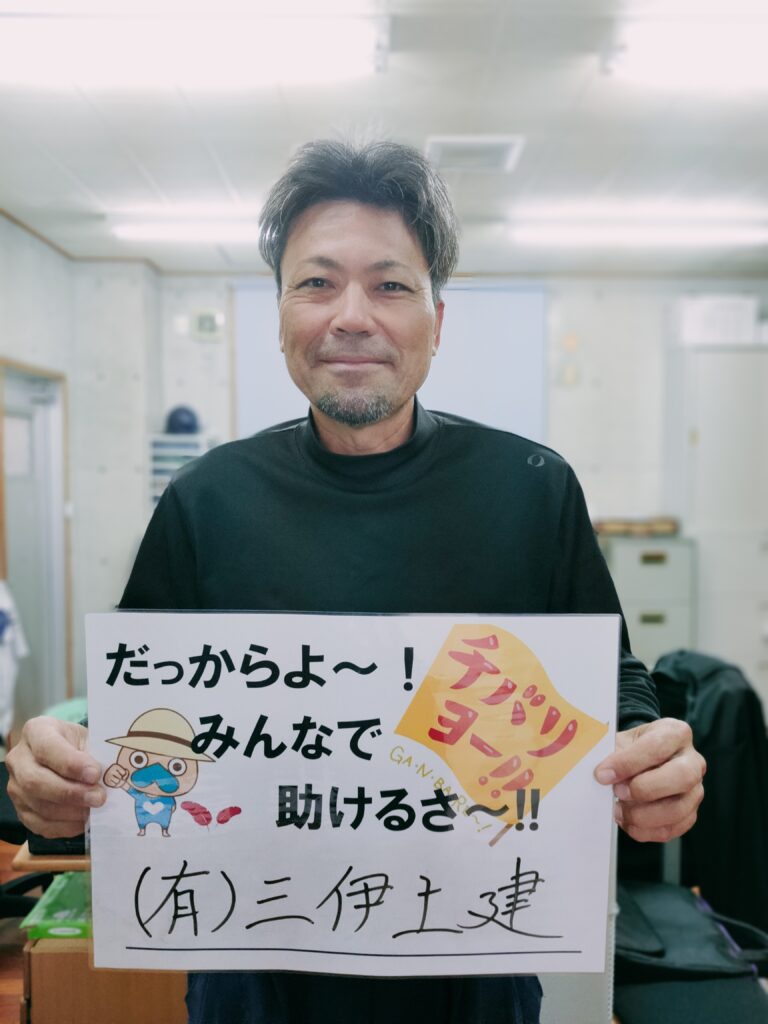 だっからよ～！
チバリ
ヨー!!
みんなで
GA・N・BARE～!
助けるさ～!!
(有)三伊土建